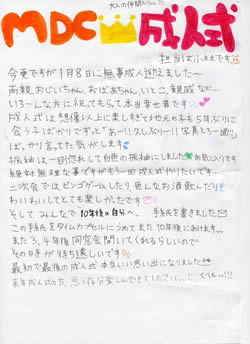 大人の仲間入りぃ!!
MDC 成人式
担当は小林です
今更ですが1月8日に無事成人迎えました〜
両親、おじいちゃん、おばあちゃん、いとこ、親戚など…
いろーんな方に祝ってもらって本当幸せ者です
成人式は想像以上に楽しすぎて地元の子も5年ぶりに
会う子ばかりでずっと「あー!!久しぶりー!!写真とろー撮ろ」
ばっかり言ってた気がします
振袖は一目惚れして白色の振袖にしました お気に入りです
絶対無理な事ですがもう一回成人式やりたいです…
二次会ではビンゴゲームしたり色んなお酒飲んだり
わいわいしてとても楽しかったです
そしてみんなで10年後の自分へ 手紙を書きました
この手紙をタイムカプセルにうめてまた10年後にあけます。。
また3、4年後同窓会開いてくれるらしいので
その日が待ち遠しいです
最初で最後の成人式 本当いい思い出になりました
来年成人式の方、思う存分楽しんできてくださいっ!!